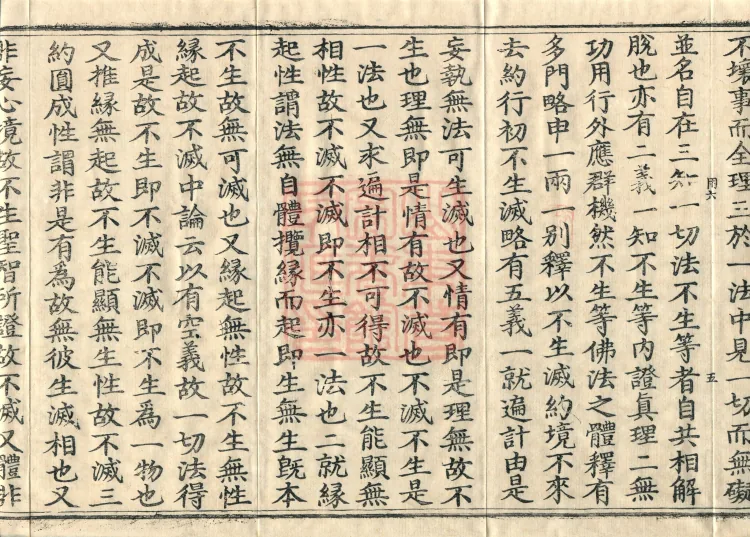 不壞事而全理三於一法中見一切而無礙
並名自在三知一切法不生等者自共相解
脫也亦有二義一知不生等內證眞理二無
功用行外應群機然不生等佛法之體釋有
多門略申一兩一別釋以不生滅約境不來
去約行初不生滅略有五義一就遍計由是
妄執無法可生滅也又情有即是理無故不
生也理無即是情有故不滅也不滅不生是
一法也又求遍計相不可得故不生能顯無
相性故不滅不滅即不生亦一法也二就緣
起性謂法無自體攬緣而起即生無生旣本
不生故無可滅也又緣起無性故不生無性
緣起故不滅中論云以有空義故一切法得
成是故不生即不滅不滅即不生爲一物也
又推緣無起故不生能顯無生性故不滅三
約圓成性謂非是有爲故無彼生滅相也又
非妄心境故不生聖智所證故不滅又體非